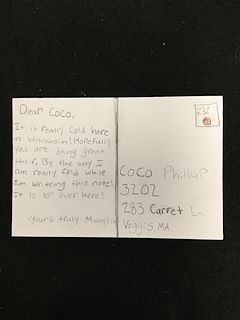 Dear Coco,
It is really cold here
in Wisconsin! Hopefully
you are doing great
their, By the way I
am really cold while
I'm writeing this note!
It is 10° over here!
-Yours truly
USA
Coco Phillup
3202
283 Carret Ln
Veggis, MA